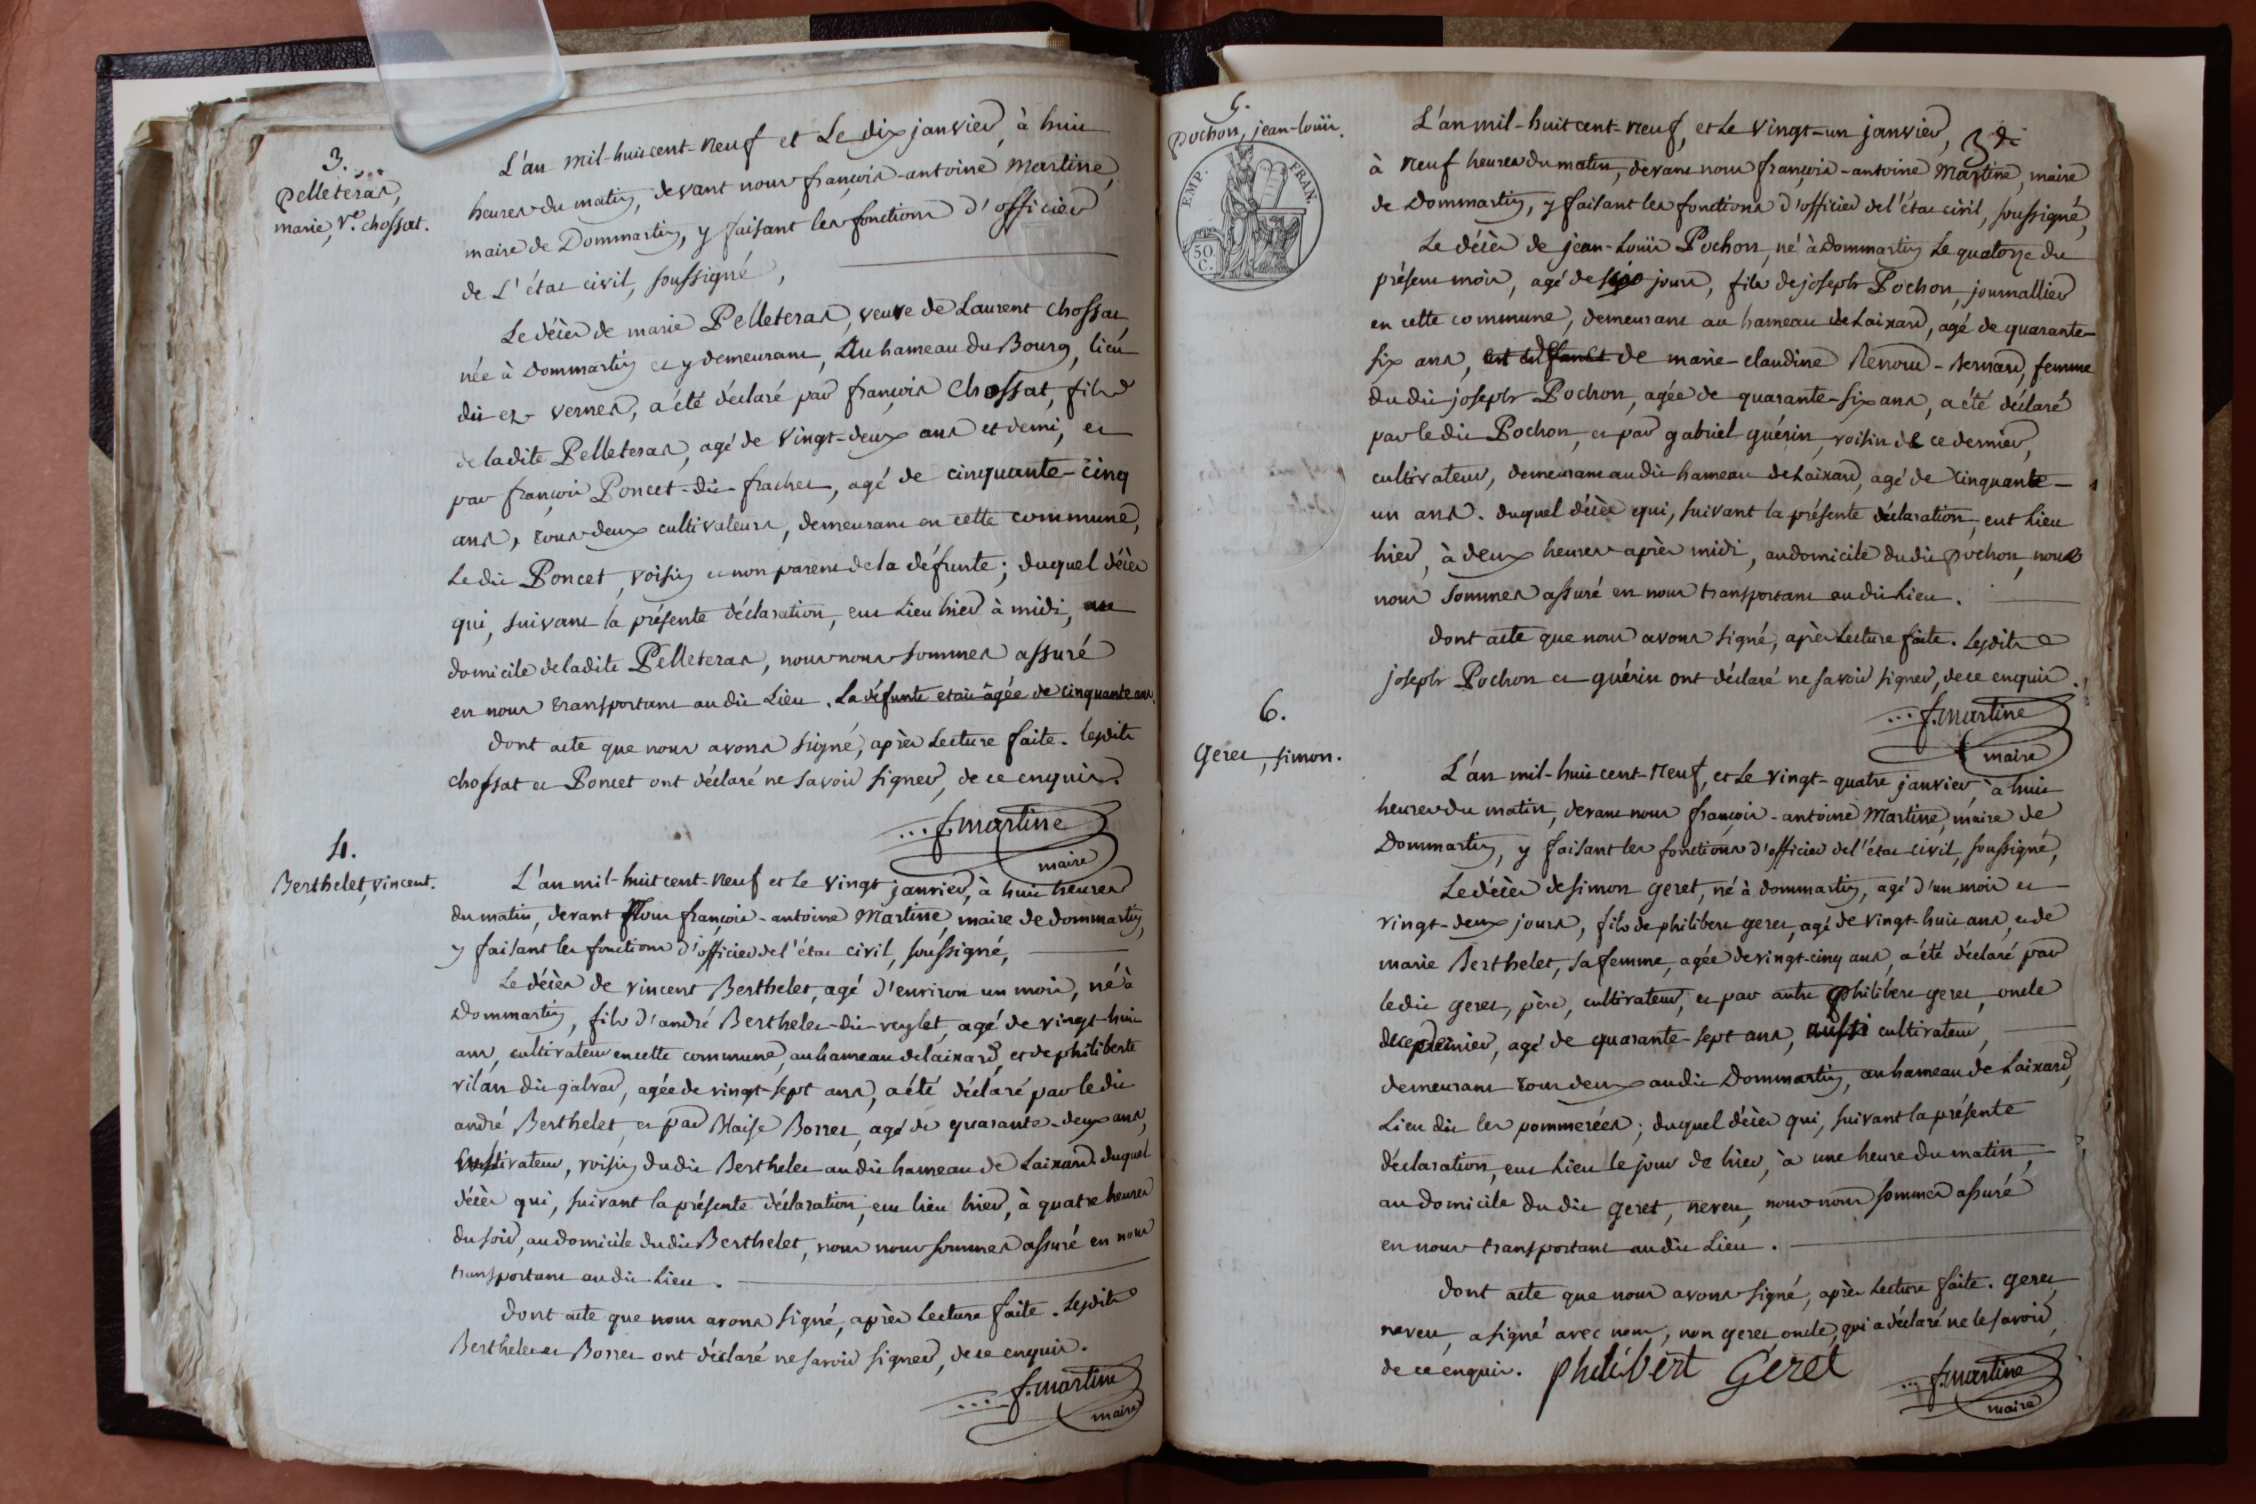 3.
Pelleteras,
marie, Ve. chossat.
L'an mil-huit cent-neuf et Le dix janvier, à huit
heures du matin, devant nous françois-antoine Martine,
maire de Dommartin, y faisant les fonctions d'officier
de L'état civil, soussigné,
Le décès de marie Pelleteras, veuve de Laurent chossat,
née à Dommartin et y demeurant, Au hameau du Bourg, lieu
dit ez-vernes, a été déclaré par françois Chossat, fils
de ladite Pelleteras, agé de vingt-deux ans et demi, et
par françois Poncet-dit-frachet, agé de cinquante-cinq
ans, tous deux cultivateurs, demeurant en cette commune,
Le dit Poncet, voisin et non parent de la défunte; duquel décès
qui, suivant la présente déclaration, eut Lieu hier à midi, au
domicile de ladite Pelleteras, nous nous sommes assuré
en nous transportant au dit Lieu. La défunte etait âgée de cinquante ans.
Dont acte que nous avons signé, après Lecture faite. lesdits
chossat et Poncet ont déclaré ne savoir signer, de ce enquis.
f. martine
maire
4.
Berthelet, vincent.
L'an mil-huit cent-neuf et Le vingt janvier, à huit heures
du matin, devant Nous françois-antoine Martine, maire de dommartin,
y faisant les fonctions d'officier de l'état civil, soussigné,
Le décès de vincent Berthelet, agé d'environ un mois, né à
Dommartin, fils d'andré Berthelet-dit-veylet, agé de vingt-huit
ans, cultivateur en cette commune, au hameau de laixard, et de philiberte
vilan dit galvad, agée de vingt-sept ans, a été déclaré par le dit
andré Berthelet, et par Blaise Borret, agé de quarante-deux ans,
Cultivateur, voisin du dit Berthelet au dit hameau de Laixard. duquel
décès qui, suivant la présente déclaration, eut lieu hier, à quatre heures
du soir, au domicile du dit Berthelet, nous nous sommes assuré en nous
transportant au dit Lieu.
Dont acte que nous avons signé, après Lecture faite. Lesdits
Berthelet et Borret ont déclaré ne savoir signer, de ce enquis.
f. martine
maire
5.
Pochon, jean-louis.
EMP. FRAN.
50 C.
L'an mil-huit cent-neuf, et Le vingt-un janvier,
à neuf heures du matin, devant nous françois-antoine Martine, maire
de Dommartin, y faisant les fonctions d'officier de l'état civil, soussigné,
Le décès de jean-Louis Pochon, né à Dommartin Le quatorze du
présent mois, agé de six jours, fils de joseph Pochon, journallier
en cette commune, demeurant au hameau de Laixard, agé de quarante-
six ans, de marie-claudine Renoud-bernard, femme
du dit joseph Pochon, agée de quarante-six ans, a été déclaré
par le dit Pochon, et par gabriel guérin, voisin de ce dernier,
cultivateur, demeurant au dit hameau de Laixard, agé de cinquante-
un ans. duquel décès qui, suivant la présente déclaration, eut Lieu
hier, à deux heures après midi, au domicile du dit pochon, nous
nous sommes assuré en nous transportant au dit Lieu.
Dont acte que nous avons signé, après Lecture faite. Lesdits
joseph Pochon et guérin ont déclaré ne savoir signer, de ce enquis.
f. martine
maire
6.
Geret, simon.
L'an mil-huit cent-neuf, et Le vingt-quatre janvier à huit
heures du matin, devant nous françois-antoine Martine, maire de
Dommartin, y faisant les fonctions d'officier de l'état civil, soussigné,
Le décès de simon geret, né à dommartin, agé d'un mois et
vingt-deux jours, fils de philibert geret, agé de vingt-huit ans, et de
marie Berthelet, sa femme, agée de vingt-cinq ans, a été déclaré par
le dit geret, père, cultivateur, et par autre philibert geret, oncle
de ce premier, agé de quarante-sept ans, aussi cultivateur,
demeurant tous deux au dit Dommartin, au hameau de Laixard,
Lieu dit les pommerées; duquel décès qui, suivant la présente
déclaration, eut Lieu le jour de hier, à une heure du matin,
au domicile du dit geret, neveu, nous nous sommes assuré
en nous transportant au dit Lieu.
Dont acte que nous avons signé, après Lecture faite. geret
neveu, a signé avec nous, non geret oncle, qui a déclaré ne le savoir,
de ce enquis. philibert Géret
f. martine
maire